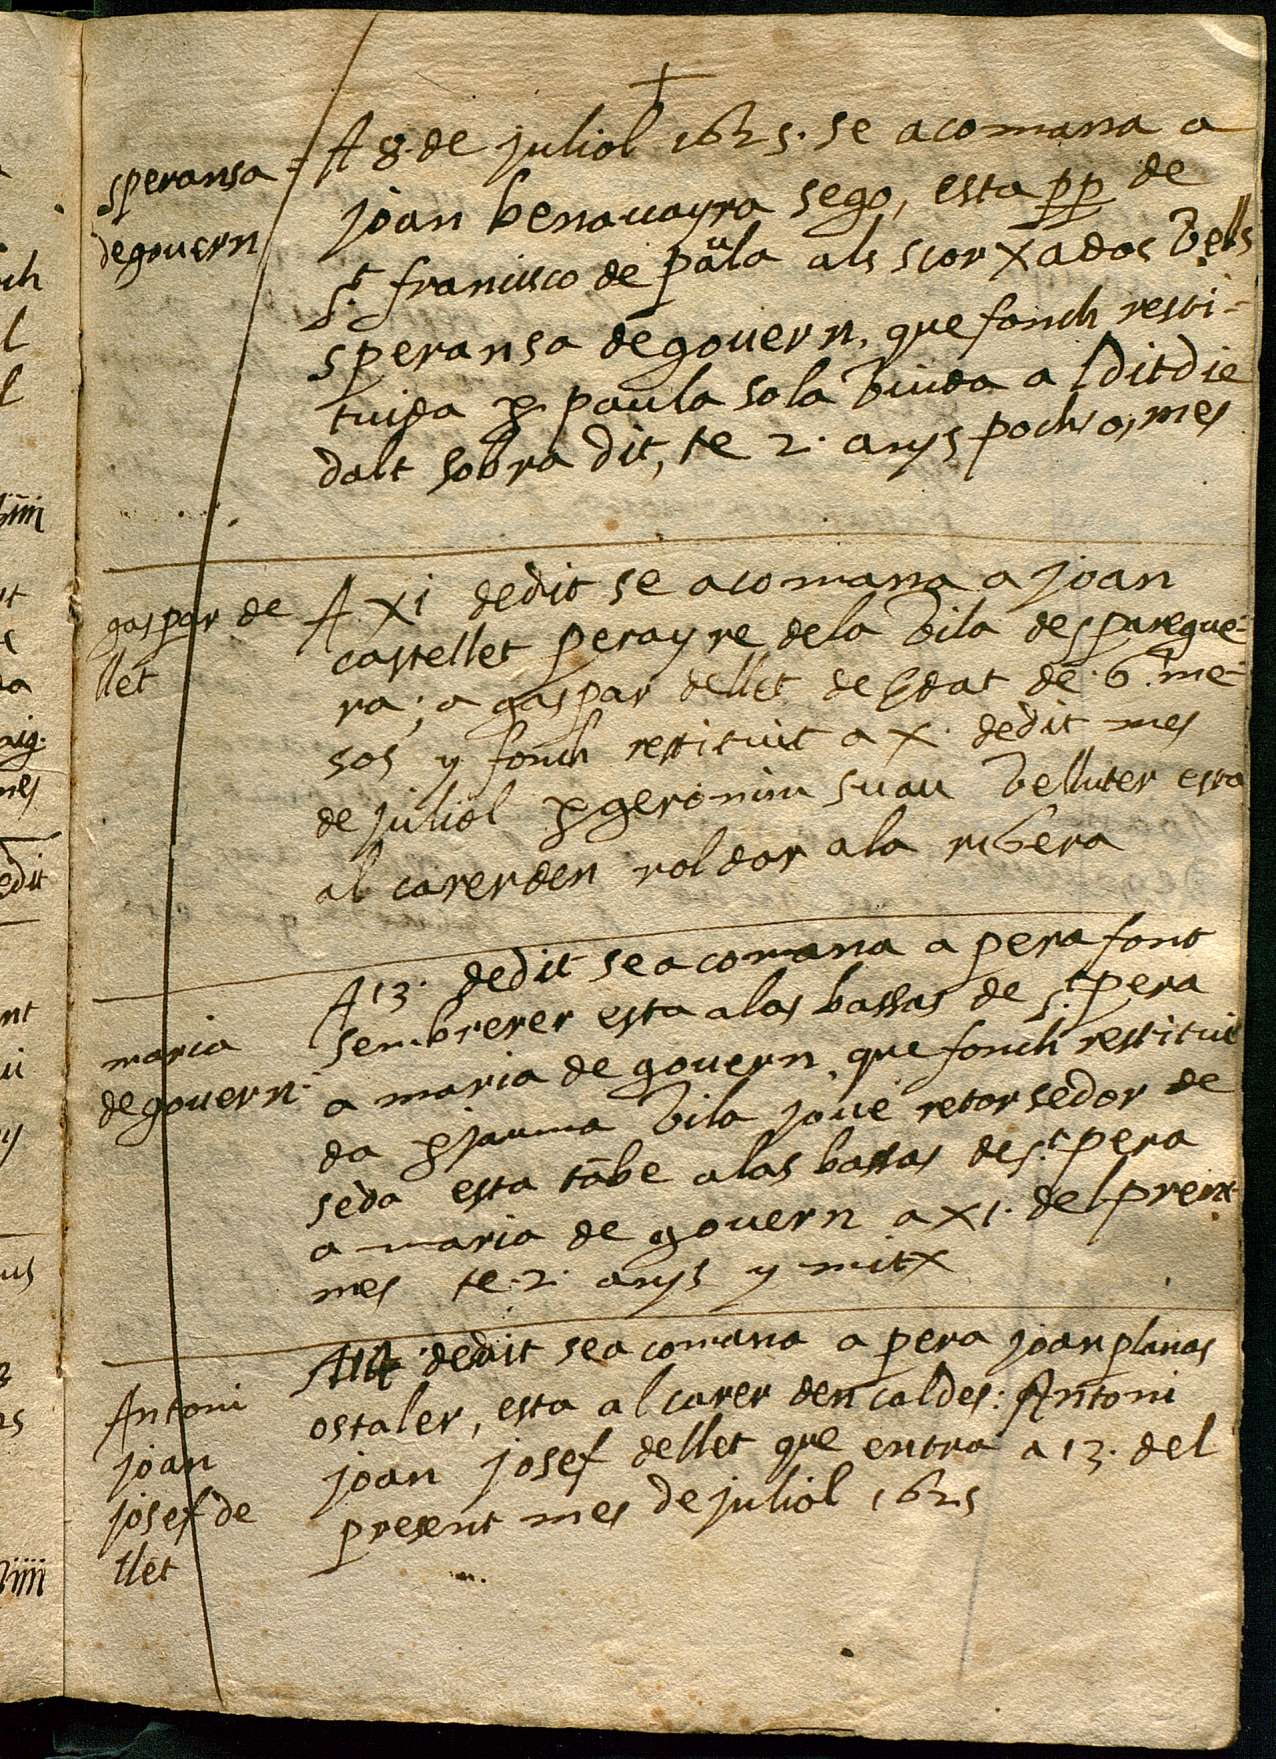 speransa
de govern
A 8. de juliol 1625. se acomana a
joan benavayra sego, esta pp de
St. francisco de paula als scorxados vells
speransa de govern, que fonch resti-
tuida p. paula sola viuda a l dit die
dalt sobra dit, te 2. anys poch o, mes
gaspar de
llet
A xi dedit se acomana a joan
castellet perayre de la vila desparegue-
ra; a gaspar dellet de edat de 6. me-
sos y fonch restituit a x. dedit mes
de juliol p geronim suau velluter esta
al carer den roldor a la ribera
maria
de govern.
A 13. dedit se acomana a pera font
sembrerer esta a las bassas de St. pera
a maria de govern que fonch restitui
da p jauma vila jove retorsedor de
seda esta tābe a las bassas de St. pera
a maria de govern a xi. del preñt
mes te 2. anys y mitx
Antoni
joan
josef de
llet
A 14 dedit se acomana a pera joan planas
ostaler, esta al carer den caldes: Antoni
joan josef dellet que entra a 13. del
present mes de juliol 1625